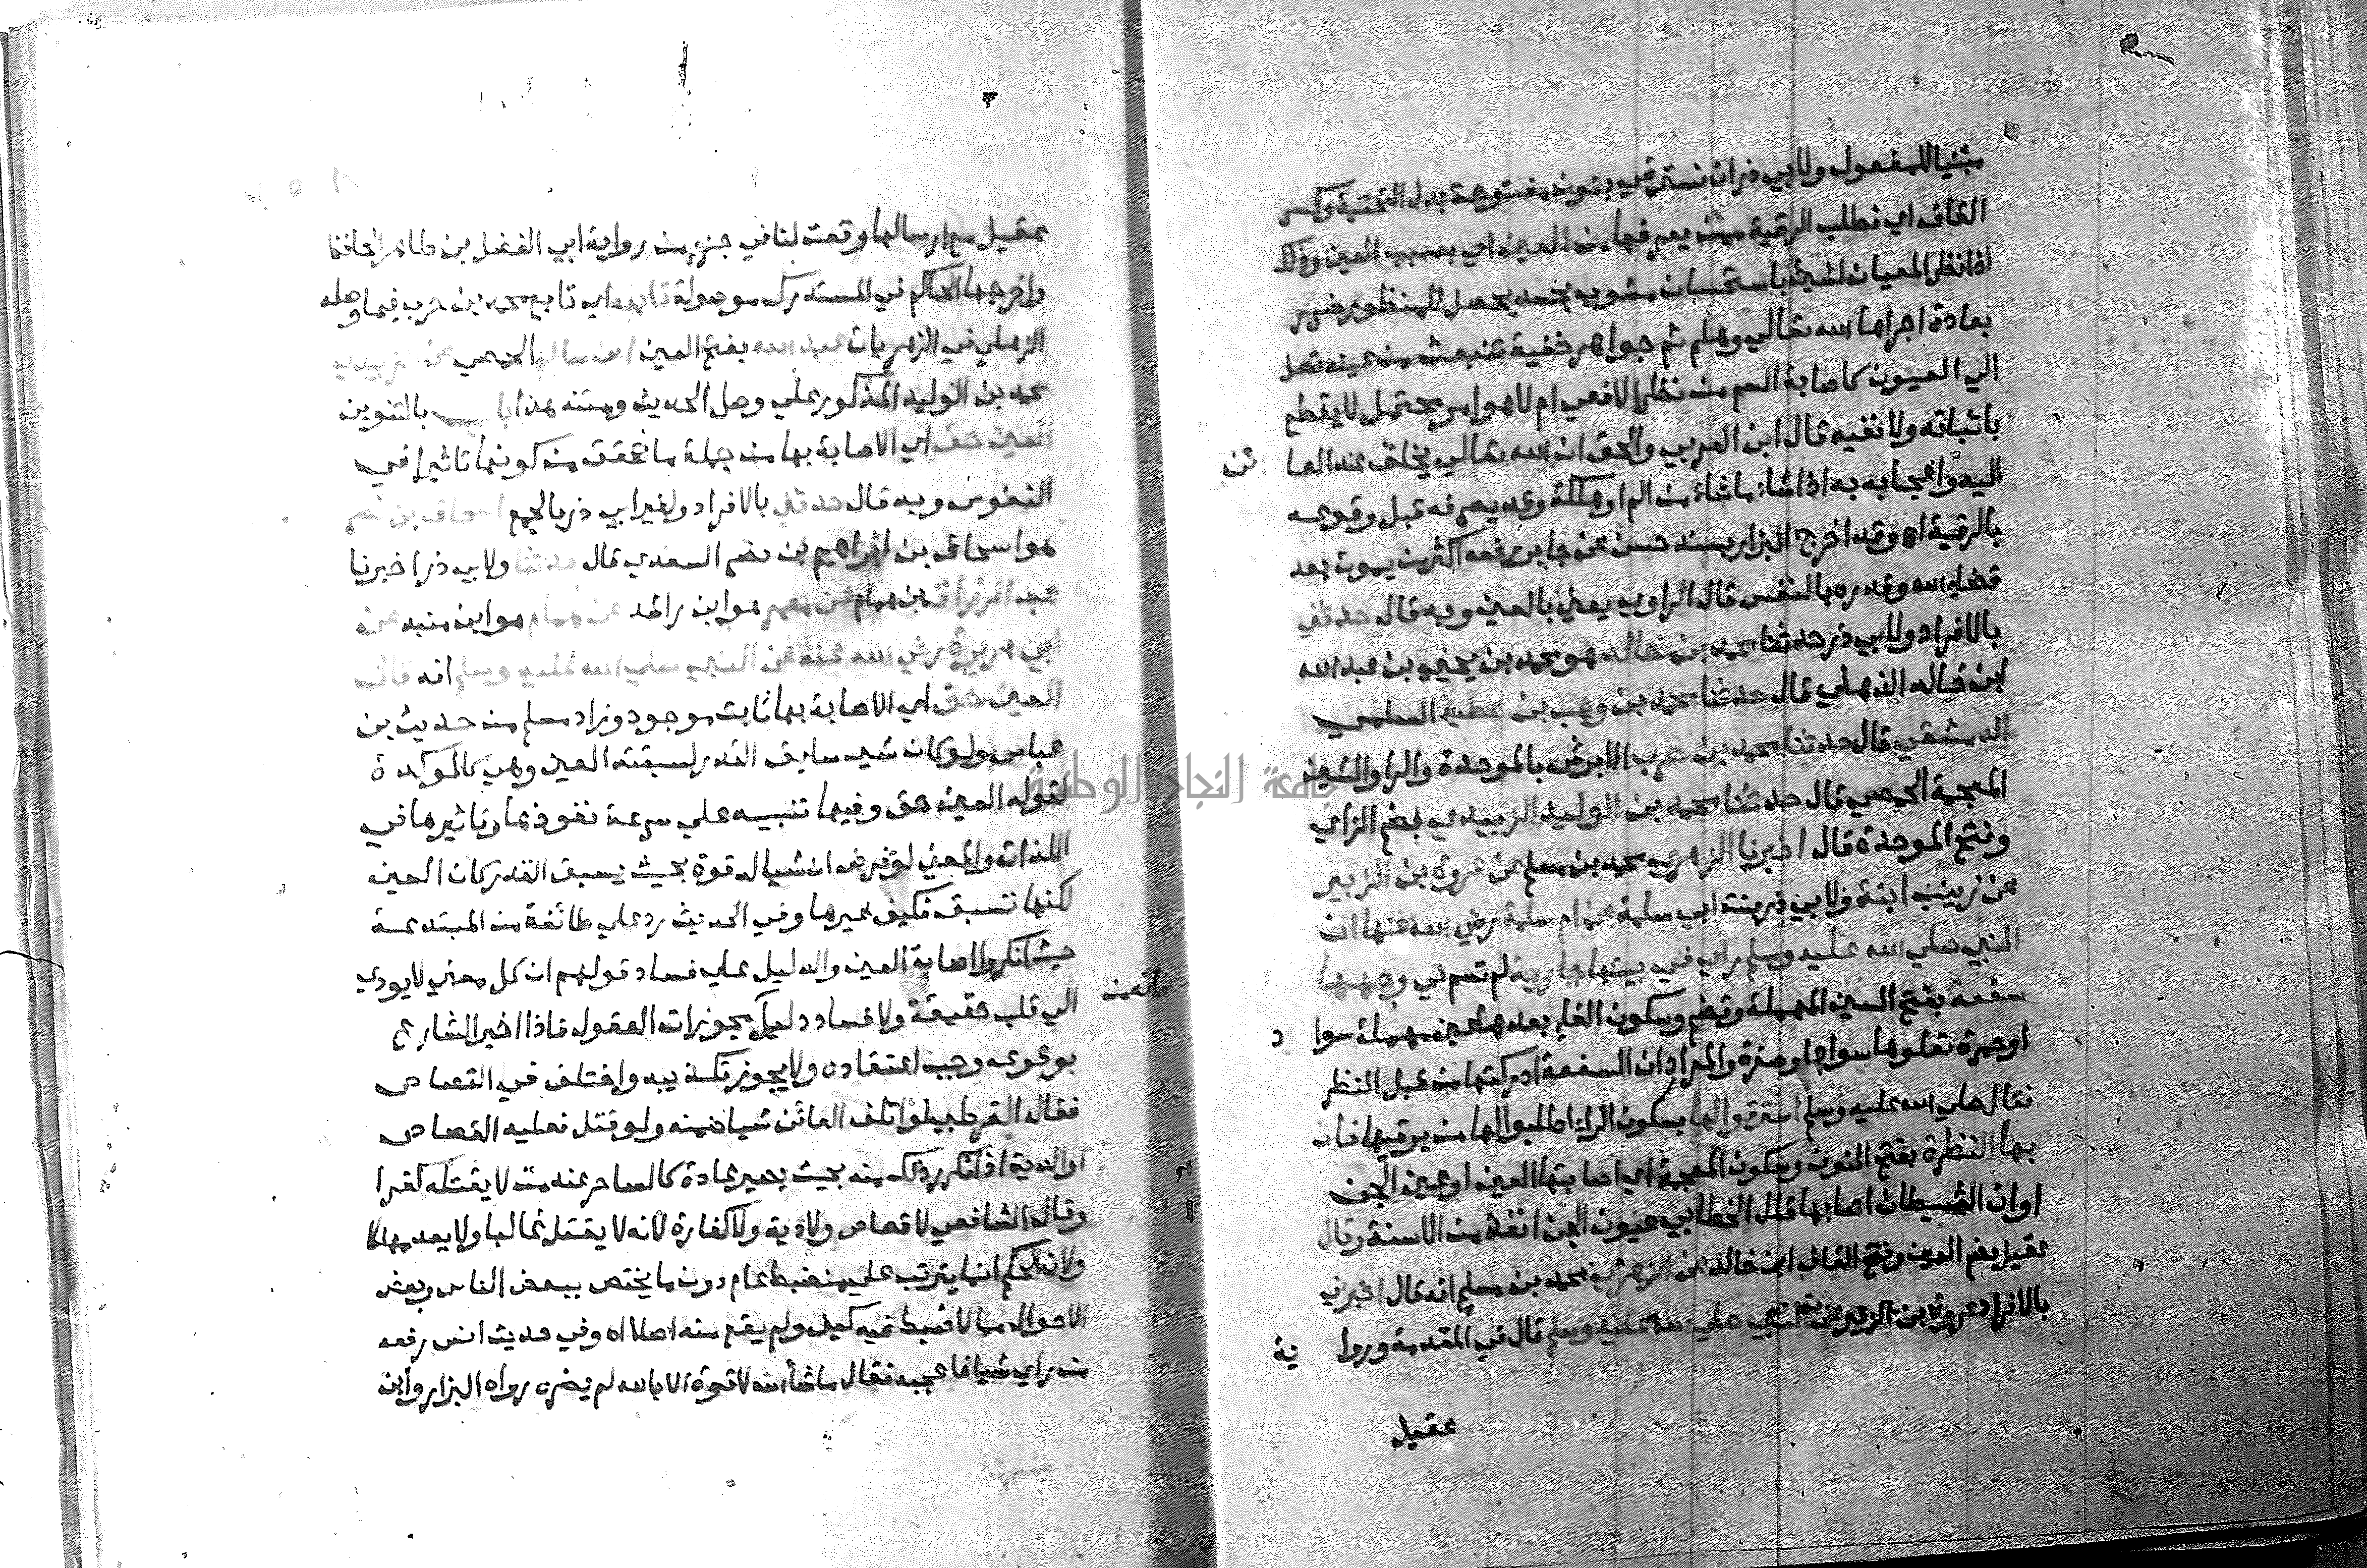 مبنيا للمفعول ولابي ذر ان نسترقي بنون مفتوحة بدل التحتية وكسر
القاف اي نطلب الرقية ممن يعرفها من العين اي بسبب العين وذلك
اذا نظر المعيان لشيء باستحسان مشوب بحسد يحصل للمنظور ضرر
بعادة اجراها الله تعالي وهل ثم جواهر خفية تنبعث من عينه تصل
الي العيون كاصابة السم من نظر الافعي ام لا هو امر محتمل لا يقطع
باثباته ولا نفيه قال ابن العربي والحق ان الله تعالي يخلق عند نظر العا ئن
اليه واعجابه به اذا شاء ما شاء من الم او هلكة وقد يصرفه قبل وقوعه
بالرقية اه وقد اخرج البزار بسند حسن عن جابر رفعه اكثر من يموت بعد
قضاء الله وقدره بالنفس قال الراوي يعني بالعين وبه قال حدثني
بالافراد ولابي ذر حدثنا محمد بن خالد هو محمد بن يحيي بن عبد الله
ابن خالد الذهلي قال حدثنا محمد بن وهب بن عطية السلمي
الدمشقي قال حدثنا محمد بن حرب الابرش بالموحدة والراء والشين
المعجمة الحمصي قال حدثنا محمد بن الوليد الزبيدي بضم الزاي
وفتح الموحدة قال اخبرنا الزهري محمد بن مسلم عن عروة بن الزبير
عن زينب ابنة ولابي ذر بنت ابي سلمة عن ام سلمة رضي الله عنها ان
النبي صلي الله عليه وسلم راي في بيتها جارية لم تسم في وجهها
سفعة بفتح السين المهملة وتضم وسكون الفاء بعدها عين مهملة سوا د
او حمرة تعلوها سواد او صفرة والمراد ان السفعة ادركتها من قبل النظر
فقال صلي الله عليه وسلم استرقوا لها بسكون الراء اطلبوا لها من يرقيها فان
بها النظرة بفتح النون وسكون المعجمة اي اصابتها العين او عين الجن
او ان الشيطان اصابها قال الخطابي عيون الجن انفذ من الاسنة وقال
عقيل بضم العين وفتح القاف ابن خالد عن الزهري محمد بن مسلم انه قال اخبرني
بالافراد عروة بن الزبير عن النبي صلي الله عليه وسلم قال في المقدمة وروا ية
عقيل
عقيل مع ارسالها وقعت لنا في جزء من رواية ابي الفضل بن طاهر الحافظ
واخرجها الحاكم في المستدرك موصولة تابعه اي تابع محمد بن حرب فيما وصله
الذهلي في الزهريات عبد الله بفتح العين ابن سالم الحمصي عن الزبيدي
محمد بن الوليد المذكور علي وصل الحديث ومتنه هذا باب بالتنوين
العين حق اي الاصابة بها من جملة ما تحقق من كونها تاثيرا في
النفوس وبه قال حدثني بالافراد ولغير ابي ذر بالجمع اسحاق بن نصر
هو اسحاق بن ابراهيم بن نصر السعدي قال حدثنا ولابي ذر اخبرنا
عبد الرزاق بن همام عن معمر هو ابن راشد عن همام هو ابن منبه عن
ابي هريرة رضي الله عنه عن النبي صلي الله عليه وسلم انه قال
العين حق اي الاصابة بها ثابت موجود وزاد مسلم من حديث بن
عباس ولو كان شيء سابق القدر لسبقته العين وهي كالموكدة
لقوله العين حق وفيها تنبيه علي سرعة نفوذها وتاثيرها في
الذات والمعني لو فرض ان شيا له قوة بحيث يسبق القدر كان العين
لكنها تسبق فكيف غيرها وفي الحديث رد علي طائفة من المبتدعة
حيث انكروا اصابة العين والدليل علي فساد قولهم ان كل معني لا يودي
الي قلب حقيقة ولا فساد دليل يجوزات العقول فاذا اخبر الشارع
بوقوعه وجب اعتقاده ولا يجوز تكذيبه واختلف في القصاص
فقال القرطبي لو اتلف العائن شيا ضمنه ولو قتل فعليه القصاص
او الدية اذا تكرر ذلك منه بحيث يصير عادة كالساحر عند من لا يقتله كفرا
وقال الشافعي لا قصاص ولا دية ولا كفارة لانه لا يقتل غالبا ولا يعد مهلكا
ولان الحكم انما يترتب علي منضبط عام دون ما يختص ببعض الناس وبعض
الاحوال مما لا انضباط فيه كيف ولم يقع منه اصلا اه وفي حديث انس رفعه
من راي شيا فاعجبه فقال ما شاء الله لا قوة الا بالله لم يضره رواه البزار وابن
جامعة النجاح الوطنية